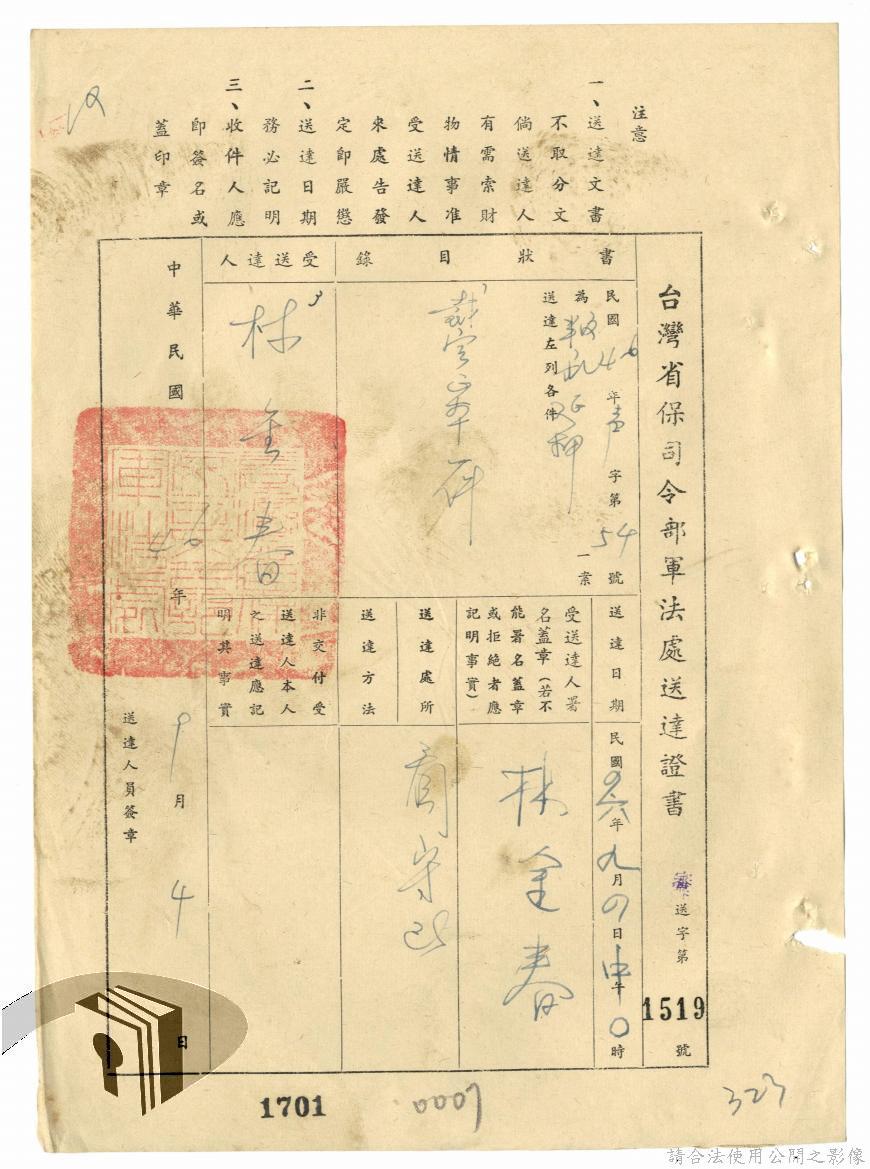 注意
一、送達文書
不取分文
倘送達人
有需索財
物情事准
受送達人
來處告發
定即嚴懲
二、送達日期
務必記明
三、收件人應
即簽名或
蓋印章
台灣省保司令部軍法處送達證書
送字第1519號
書狀目錄
民國46年 字第54號
為叛亂延押一案
送達左列各件
裁定正本一件
受送達人
林金春
中華民國46年9月4日
送達日期
民國四六年九月四日中午0時
受送達人署
名蓋章(若不
能署名蓋章
或拒絕者應
記明事實)
林金春
送達處所
看守所
送達方法
非交付受
送達人本人
之送達應記
明其事實
送達人員簽章
1701
323
請合法使用公開之影像